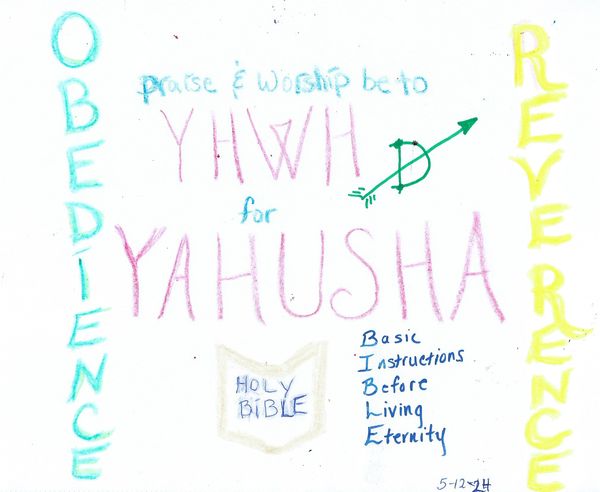 OBEDIENCE
praise & worship be to
YHWH
for
YAHUSHA
HOLY
BIBLE
Basic
Instructions
Before
Living
Eternity
5-12-24
REVERENCE